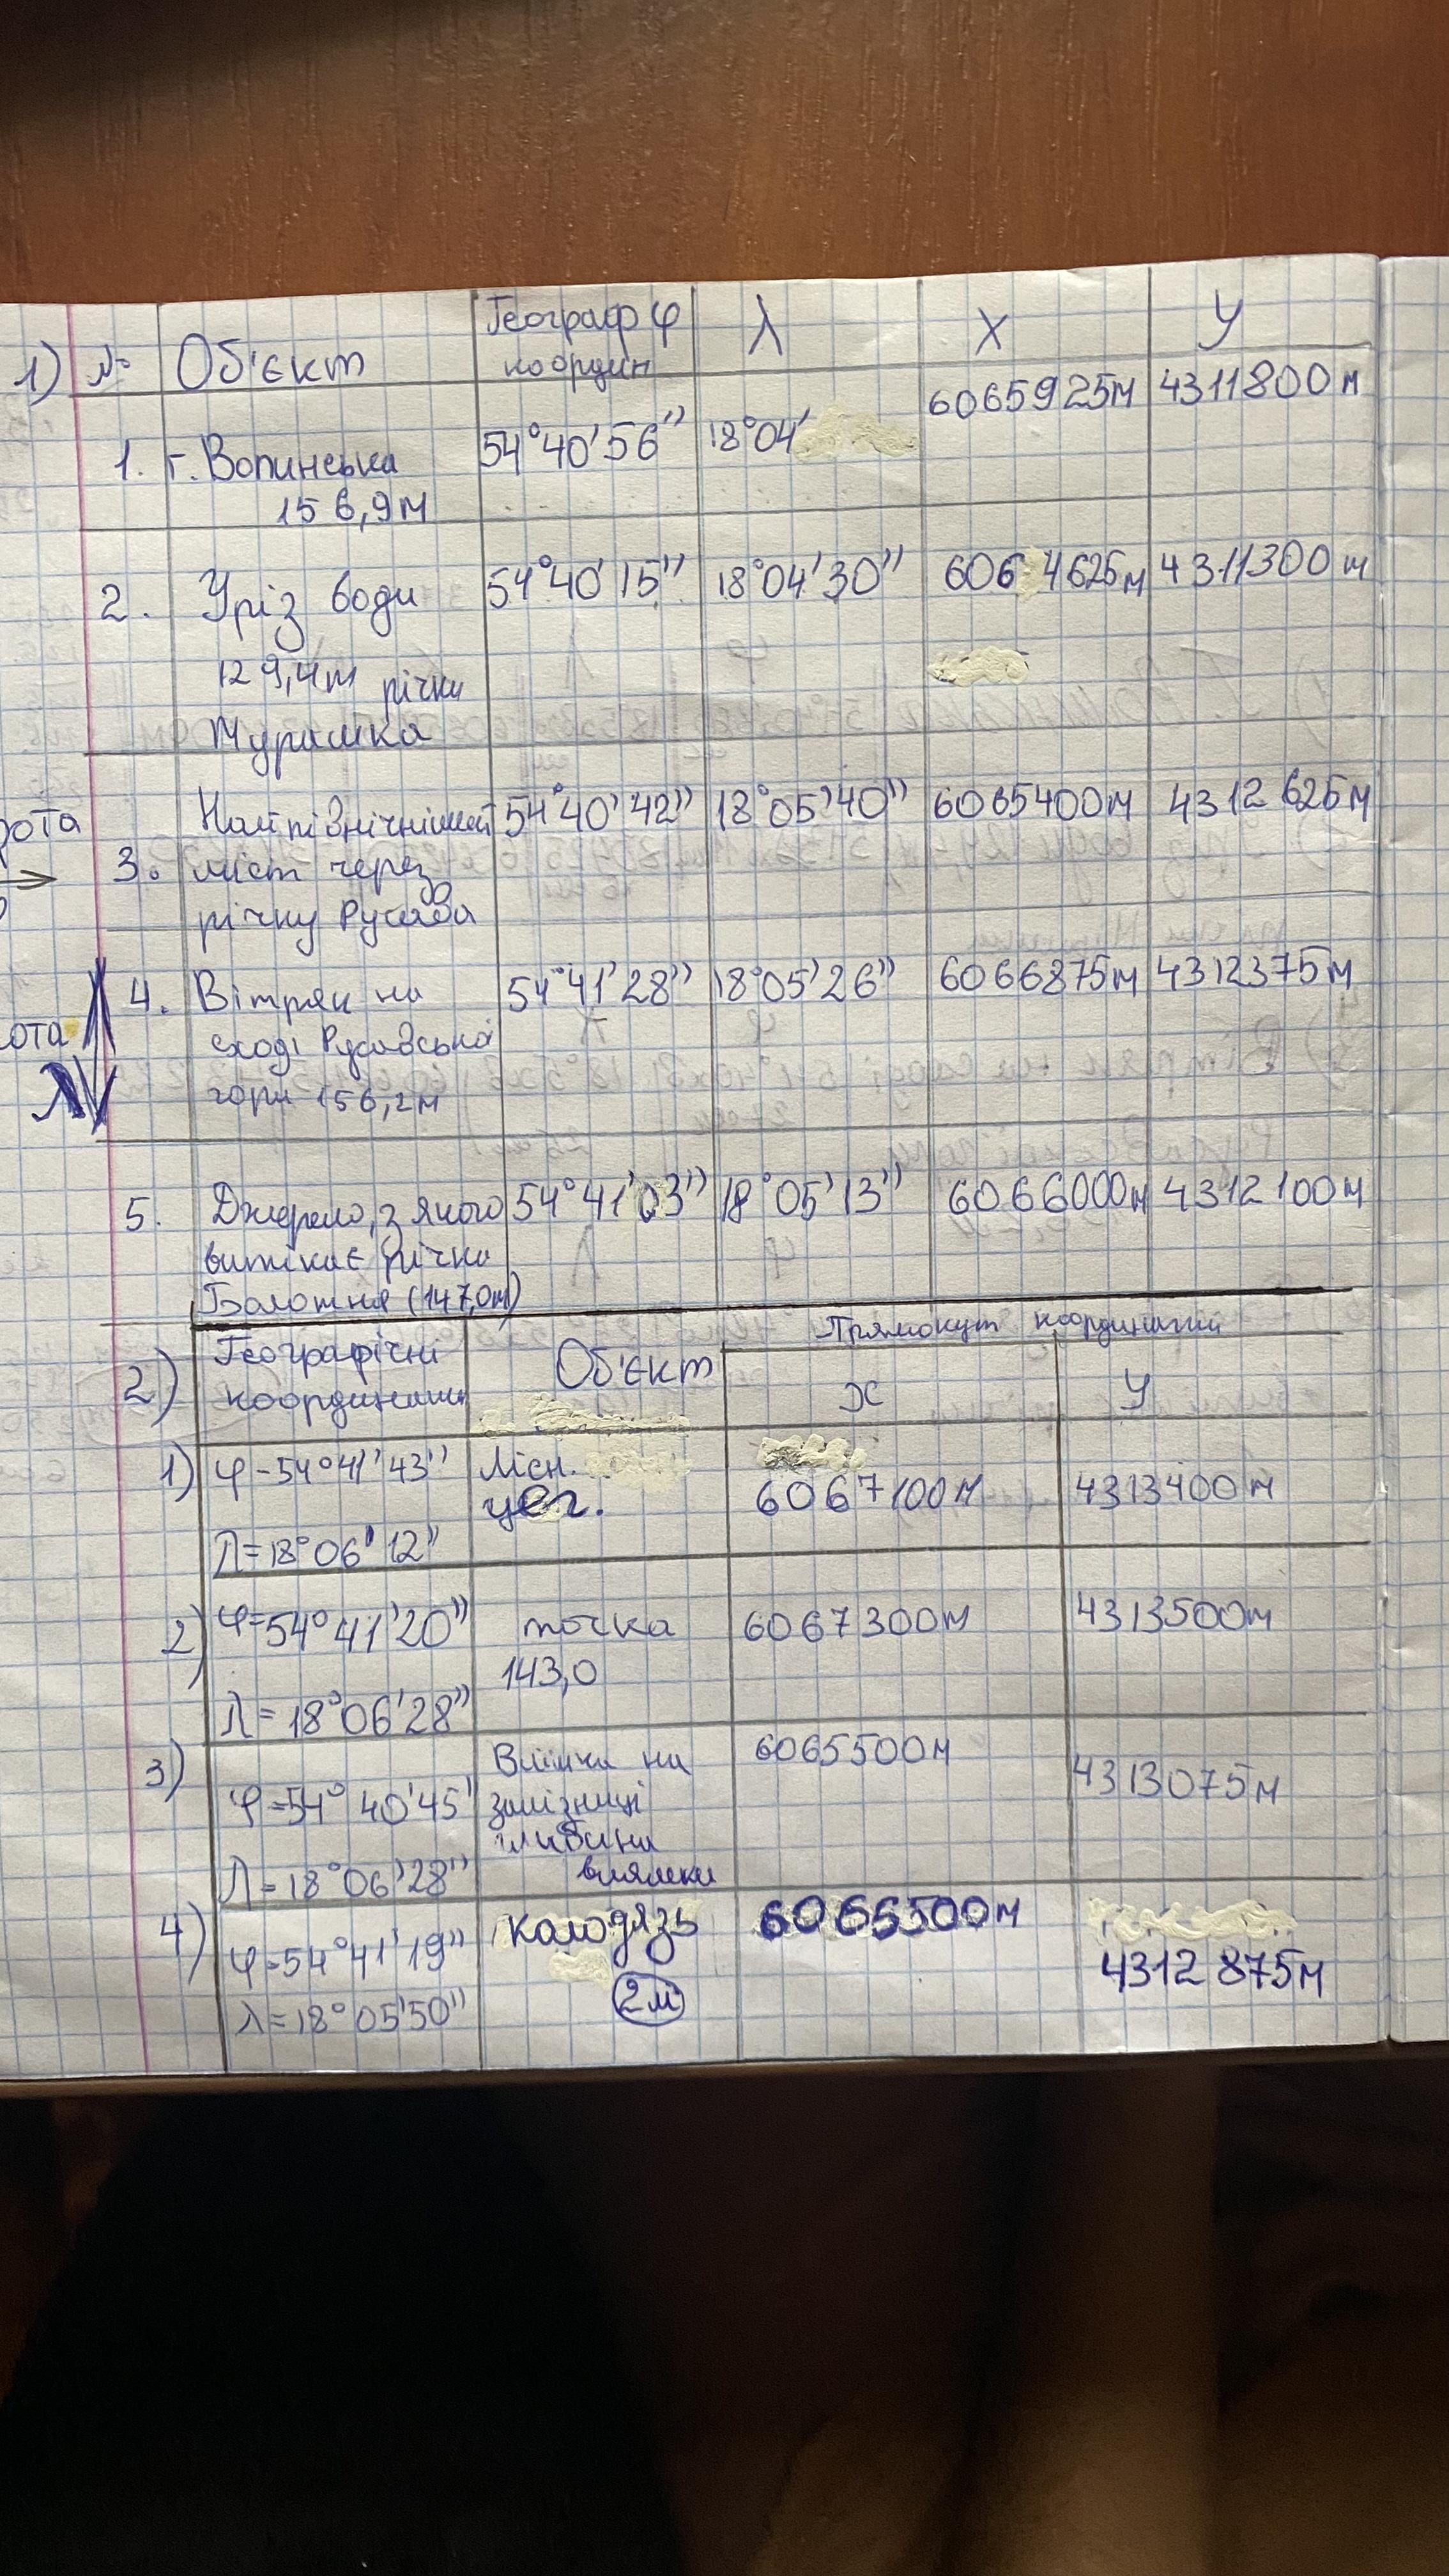 1) № Об'єкт Географ φ координ λ X У
1. г. Вопинська 54°40'56" 18°04' 6065925м 4311800м
156,9м
2. Уріз води 54°40'15" 18°04'30" 6064625м 4311300м
129,4м річки
Мурашка
3. Найпівнічніший 54°40'42" 18°05'40" 6065400м 4312625м
міст через
річку Русава
4. Вітряк на 54°41'28" 18°05'26" 6066875м 4312375м
сході Русавської
гори 156,2м
5. Джерело, з якого 54°41'03" 18°05'13" 6066000м 4312100м
витікає річка
Болотня (147,0м)
2) Географічні координати Об'єкт Прямокут координати
х у
1) φ-54°41'43" Лісн. 6067100м 4313400м
цег.
Λ=18°06'12"
2) φ=54°41'20" точка 6067300м 4313500м
143,0
λ=18°06'28"
3) φ=54°40'45" Виїмка на 6065500м 4313075м
залізниці
глибина
виямки
Λ=18°06'28"
4) φ=54°41'19" Колодязь 6066500м 4312875м
λ=18°05'50" 2м
рота
ота
λ